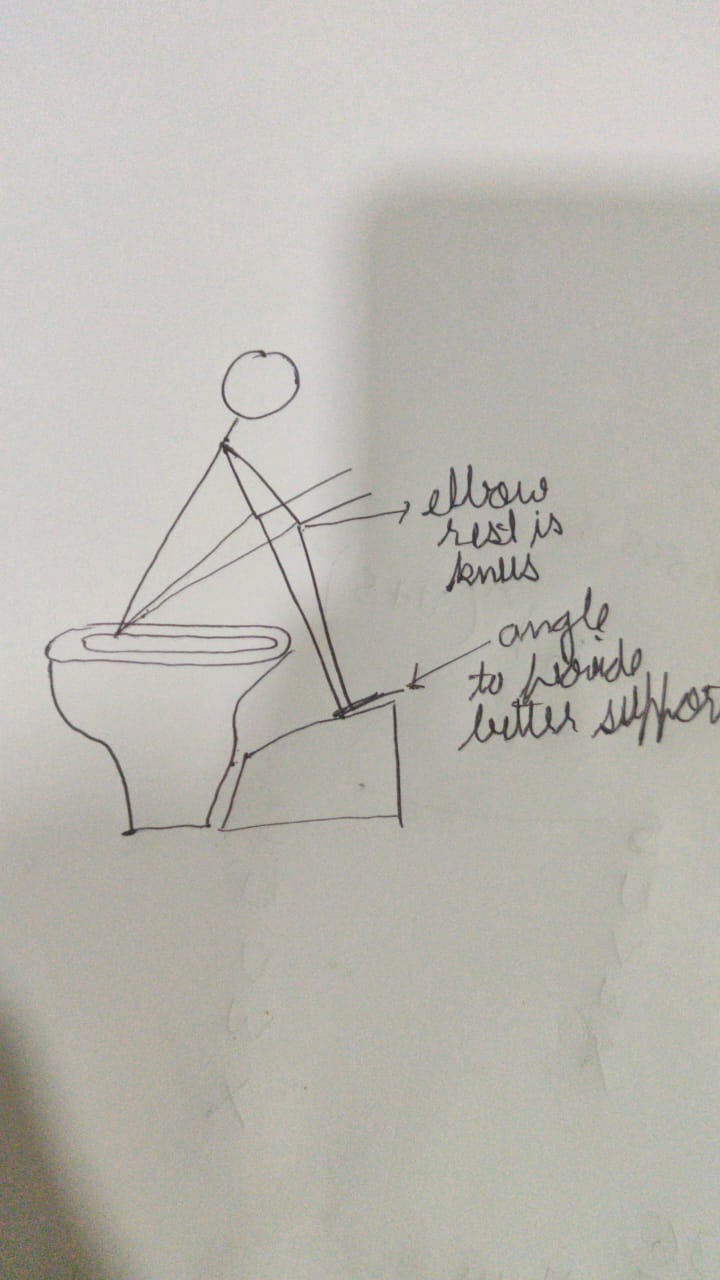 elbow
rest is
knus
angle
to provide
better suppor